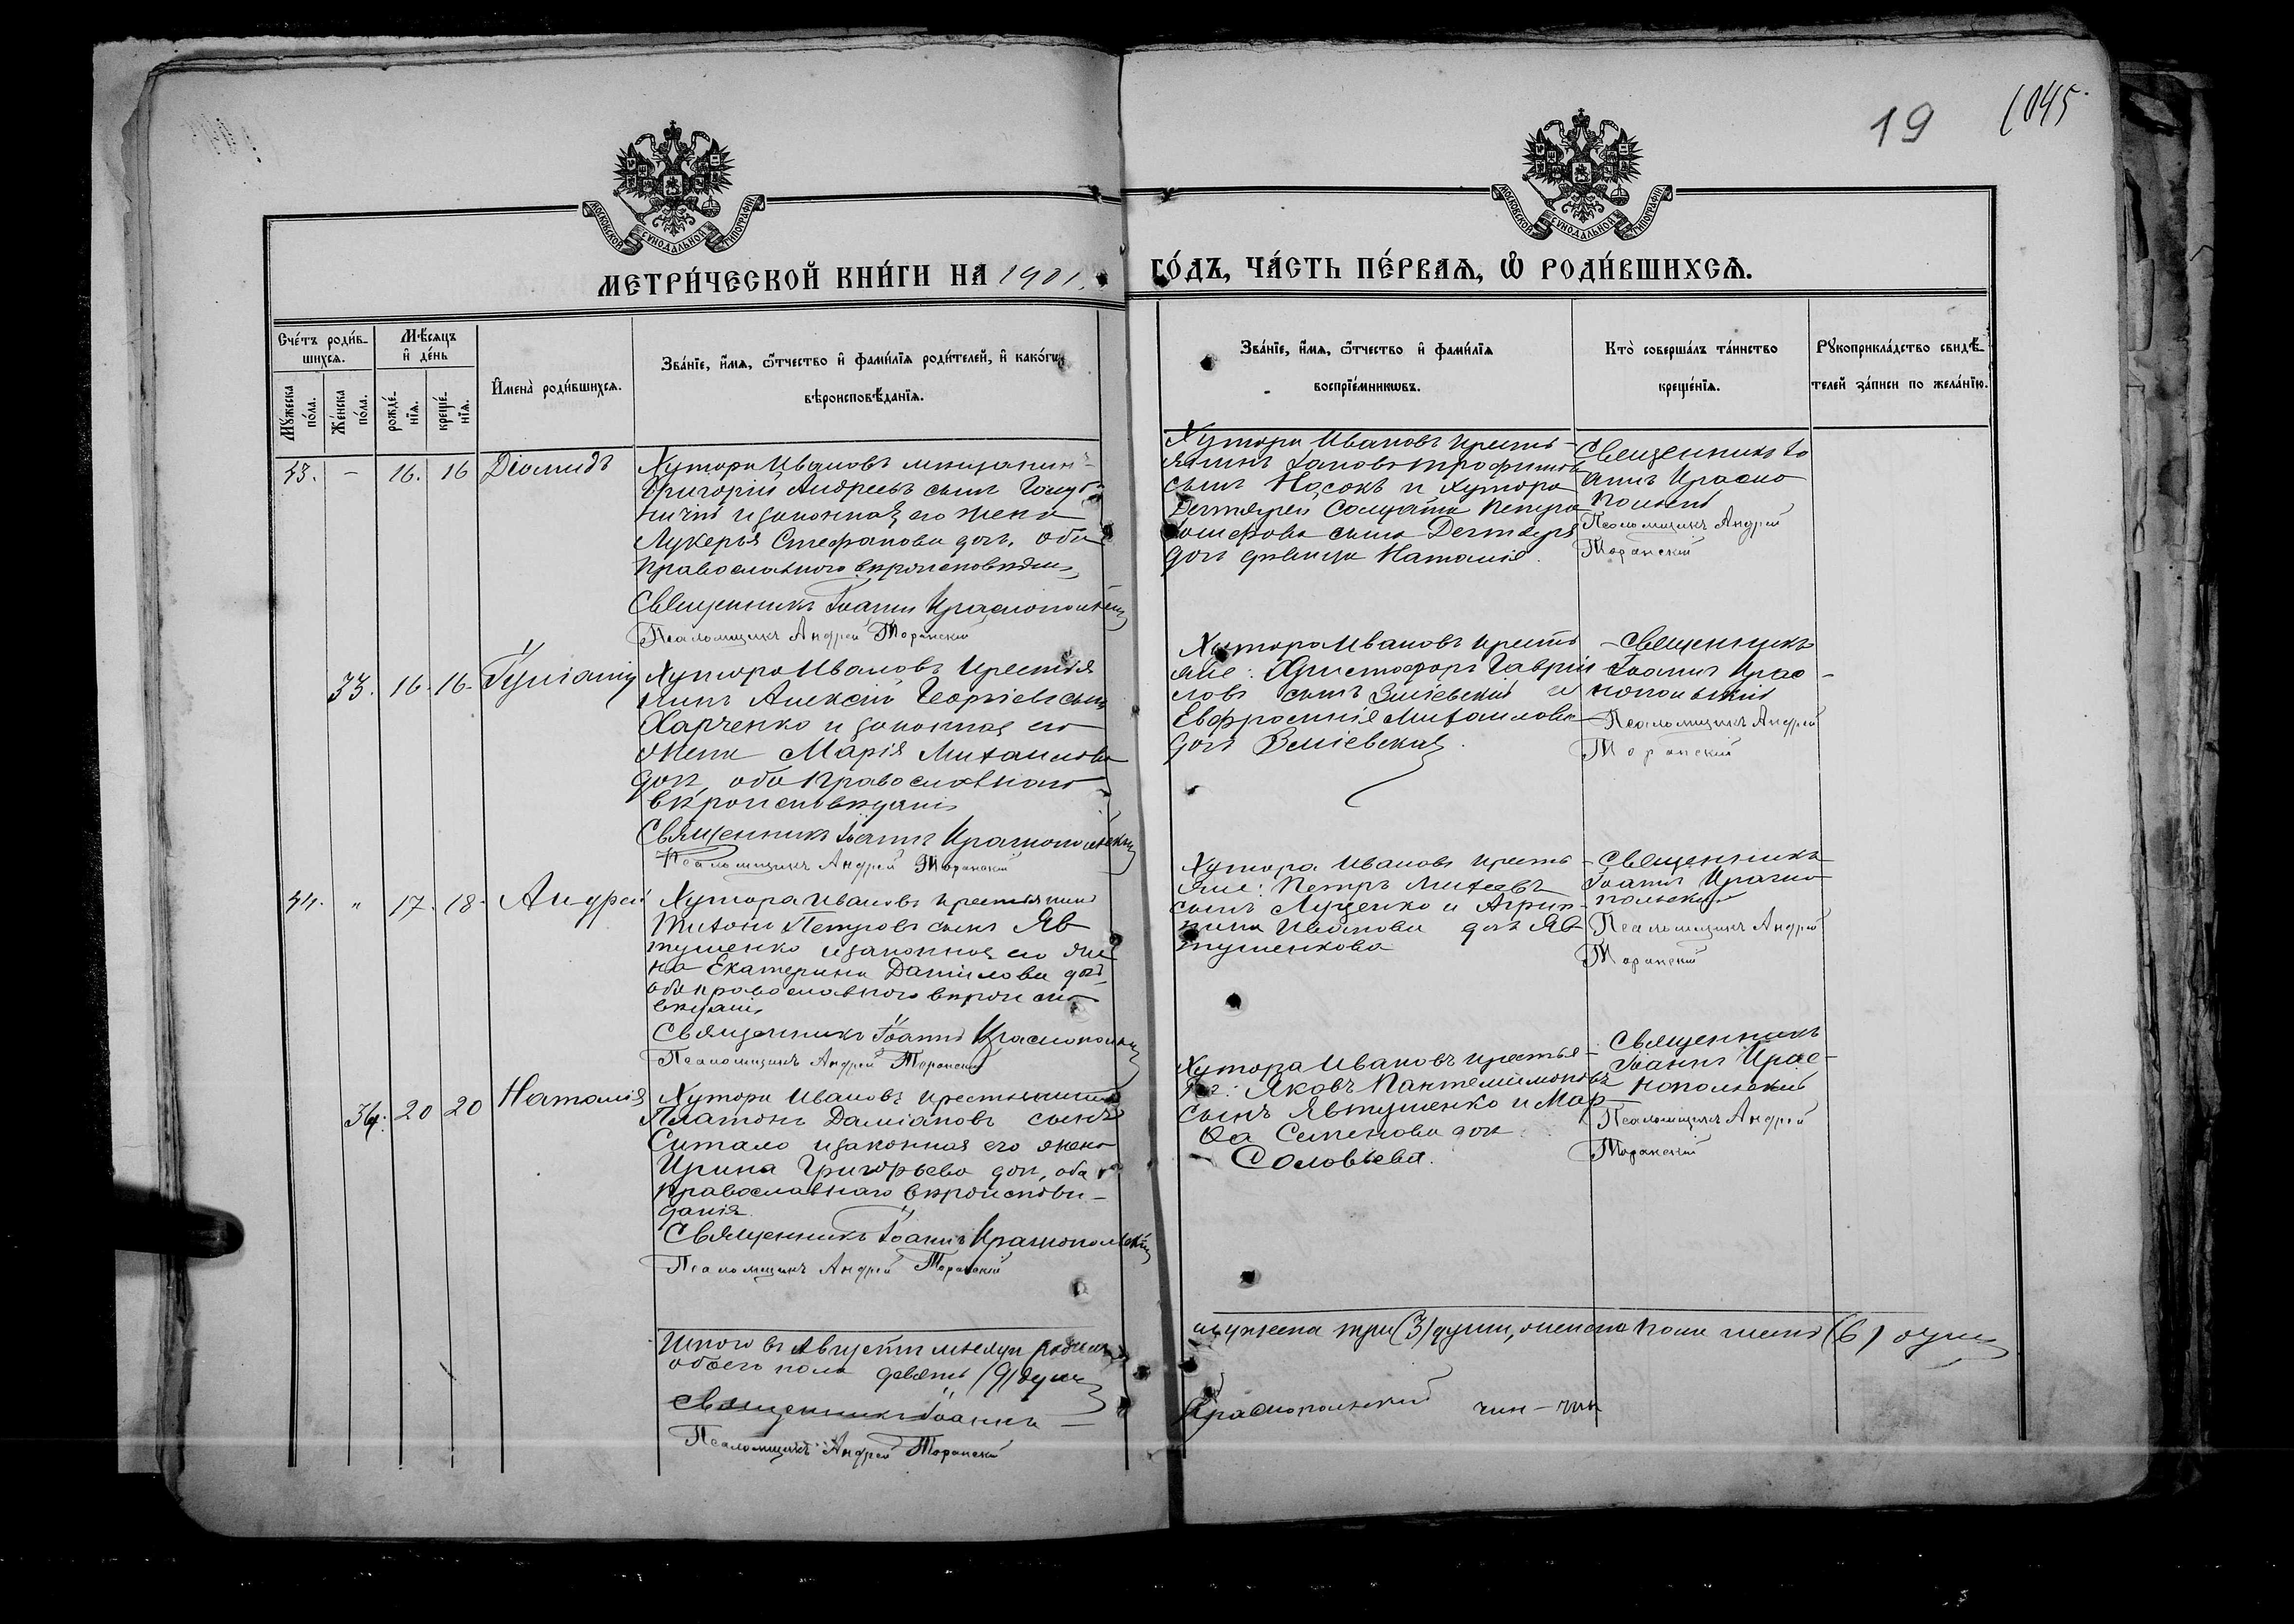 19 1045
МОСКОВСКОЙ СѴНОДАЛЬНОЙ ТИПОГРАФІИ
МОСКОВСКОЙ СѴНОДАЛЬНОЙ ТИПОГРАФІИ
МЕТРИ́ЧЕСКОЙ КНИ́ГИ НА 1901.
ГО́ДЪ, ЧА́СТЬ ПЕ́РВАЯ, Ѡ РОДИ́ВШИХСЯ.
Сче́тъ роди́в-
шихся.
Мꙋ́жеска
по́ла.
Же́нска
по́ла.
Мѣ́сяцъ
и де́нь
рожде́-
нїя.
креще́-
нїя.
Имена̀ роди́вшихся.
Зва́нїе, и́мя, ѻ҆́тчество и фами́лїя роди́телей, и како́гѡ
вѣроисповѣ́данїя.
Зва́нїе, и́мя, ѻ҆́тчество и фами́лїя
воспрїе́мникѡвъ.
Кто̀ соверша́лъ та́инство
креще́нїя.
Рꙋкоприкла́дство свидѣ́-
телей за́писи по жела́нїю.
43. - 16. 16 Діомидъ
Хутора Ивановъ мещанинъ
Григорій Андреевъ сынъ
и законная его жена
Лукерья Стефанова доч. оба
православного вероисповедания
Священникъ Іоаннъ Краснопольскій
Псаломщикъ Андрей Торанскій
Хутора Ивановъ кресть-
янинъ Трофимовъ
сынъ Носокъ и хутора
Петра
Іосифова сына
доч девица Наталія.
Священникъ Іо
аннъ Красно
польскій
Псаломщикъ Андрей
Торанскій
33. 16. 16.
Хутора Ивановъ крестья
нинъ Алексей Георгіевъ сынъ
Харченко и законная его
жена Марія Михаилова
доч, оба православного
вероисповедания
Священникъ Іоаннъ Краснопольскій
Псаломщикъ Андрей Торанскій
Хутора Ивановъ кресть
яне: Христофоръ Гаврии
ловъ сынъ Зміевскій и
Евфросинія Михаилова
доч Зміевская.
Священникъ
Іоаннъ Крас-
нопольскій
Псаломщикъ Андрей
Торанскій
44. " 17. 18. Андрей
Хутора Ивановъ крестьянинъ
Тихонъ Петровъ сынъ Яв
тушенко и законная его же
на Екатерина Данилова доч
оба православного вероиспо
ведания
Священникъ Іоаннъ Краснопольскій
Псаломщикъ Андрей Торанскій
Хутора Ивановъ кресть
яне: Петръ Михеевъ
сынъ Луценко и Агрип-
пина Иванова доч Яв-
тушенкова
Священникъ
Іоаннъ Красно
польскій
Псаломщикъ Андрей
Торанскій
34. 20 20 Наталія
Хутора Ивановъ крестьянинъ
Платонъ Даміановъ сынъ
Ситало и законная его жена
Ирина Григорьева доч, оба
православнаго вероиспове-
данія.
Священникъ Іоаннъ Краснопольскій
Псаломщикъ Андрей Торанскій
Хутора Ивановъ крестья-
не: Яковъ Пантелимоновъ
сынъ Явтушенко и Мар
ѳа Семенова доч
Соловьева.
Священникъ
Іоаннъ Крас-
нопольскій
Псаломщикъ Андрей
Торанскій
Итого въ Августе месяце родилось
обоего пола девять (9) душъ
мужеска три (3) души, женска пола шесть (6) душъ
Священникъ Іоаннъ
Краснопольскій
Псаломщикъ Андрей Торанскій